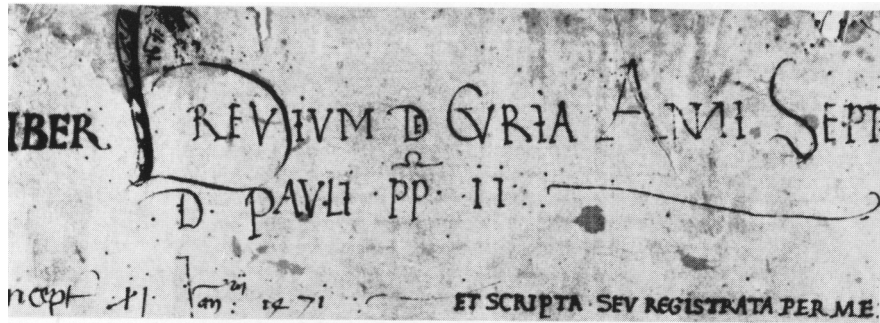 IBER BREVIVM DE CVRIA ANNI SEPT
D. PAVLI PP II
ncept XI Ian 1471 ET SCRIPTA SEV REGISTRATA PER ME